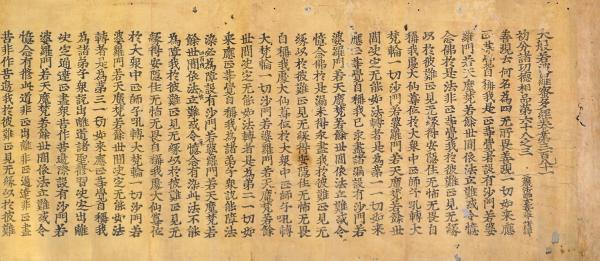 大般若波羅蜜多經卷第三百八十一
初分諸功德相品第六十八之三 三藏法師玄奘奉詔譯
善現云何名為四无所畏善現一切如來應
正等覺自稱我是正等覺者設有沙門若婆
羅門若天魔梵若餘世間依法立難或令憶
念佛於是法非正等覺我於彼難正見无緣
以於彼難正見无緣得安隱住无怖无畏自
稱我處大仙尊位於大衆中正師子吼轉大
梵輪一切沙門若婆羅門若天魔梵若餘世
間決定无能如法轉者是為第一一切如來
應正等覺自稱我已永盡諸漏設有沙門若
婆羅門若天魔梵若餘世間依法立難或令
憶念佛於是漏未得永盡我於彼難正見无
緣以於彼難正見无緣得安隱住无怖无畏
自稱我處大仙尊位於大衆中正師子吼轉
大梵輪一切沙門若婆羅門若天魔梵若餘
世間決定无能如法轉者是為第二一切如
來應正等覺自稱我為諸弟子衆說能障法
染必為障設有沙門若婆羅門若天魔梵若
餘世間依法立難或令憶念有染此法不能
為障我於彼難正見无緣以於彼難正見无
緣得安隱住无怖无畏自稱我處大仙尊位
於大衆中正師子吼轉大梵輪一切沙門若
婆羅門若天魔梵若餘世間決定无能如法
轉者是為第三一切如來應正等覺自稱我
為諸弟子衆說出離道諸聖修習決定出離
決定通達正盡衆苦作苦邊際設有沙門若
婆羅門若天魔梵若餘世間依法立難或令
憶念有修此道非正出離非正通達非正盡
苦非作苦邊我於彼難正見无緣以於彼難